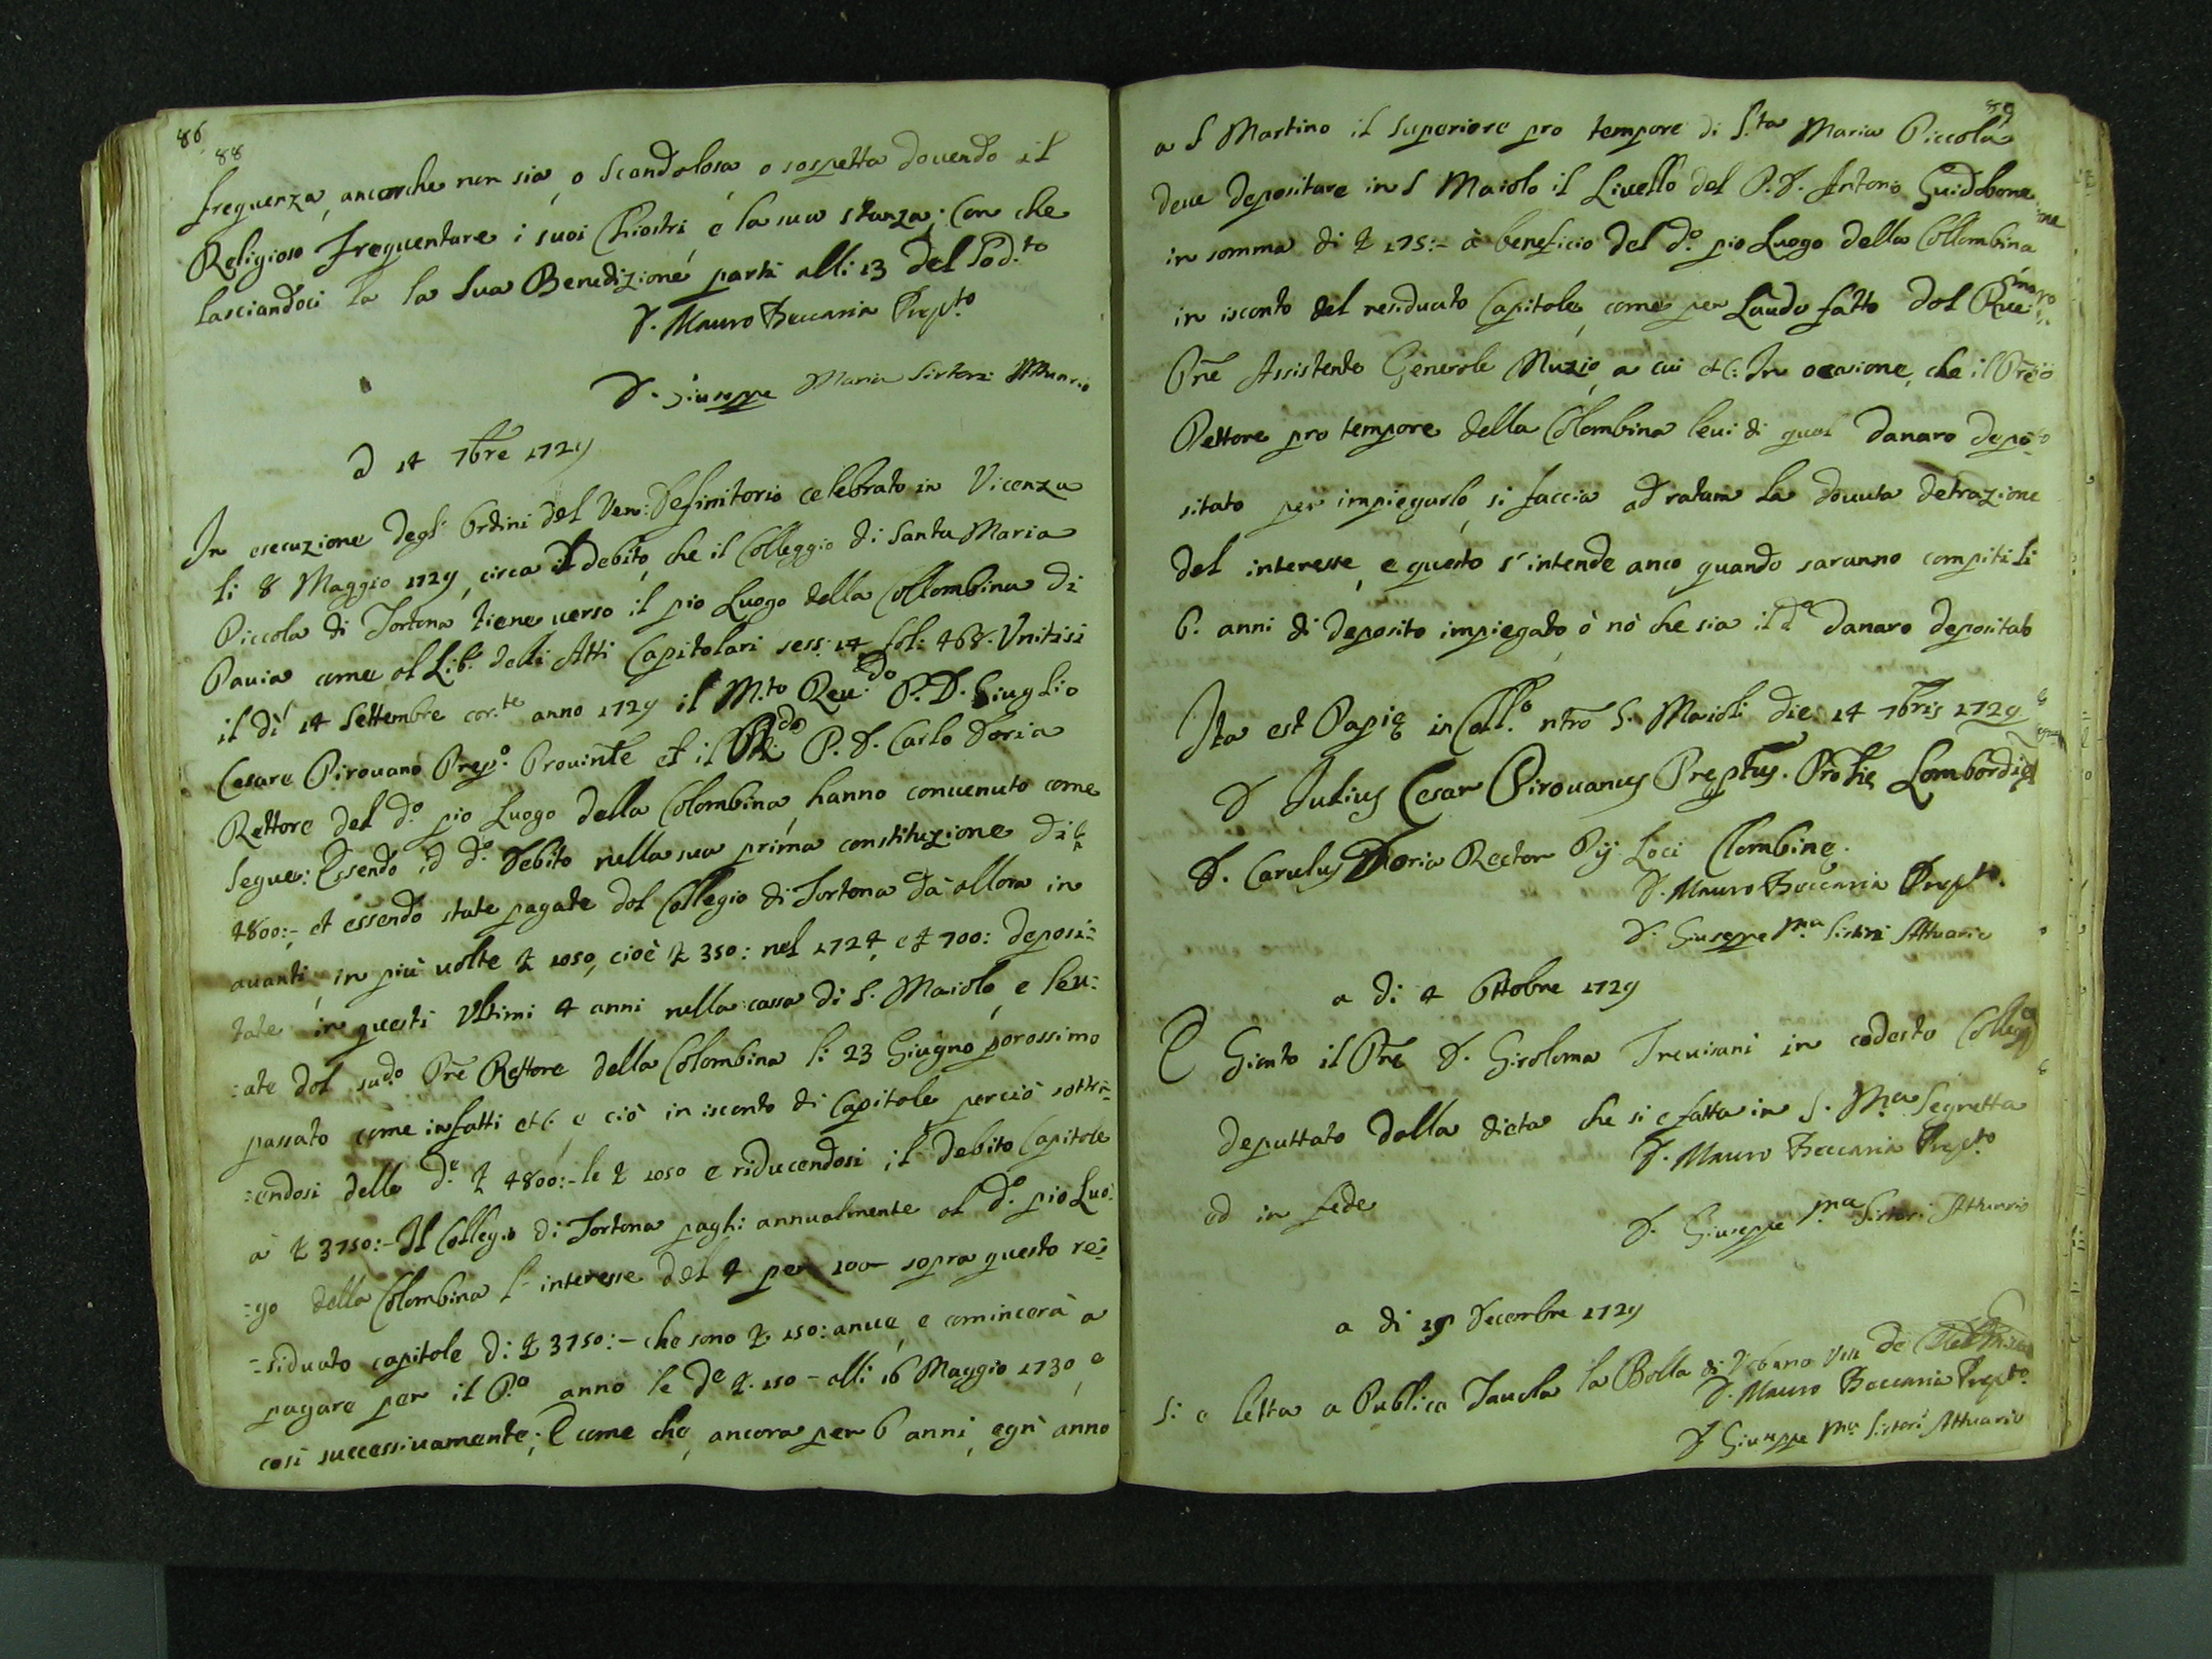 86
88
frequenza, ancorche non sia, o Scandolosa o sospetta dovendo il
Religioso frequentare i suoi Chiostri, e la sua stanza; Con che
lasciandoci la la Sua Benedizione parti alli 13 del Sod.to
D. Mauro Beccaria Prep.to
D. Giuseppe Maria Sirtori Attuario
a 14 7bre 1729
In esecuzione degl' Ordini del Ven: Definitorio celebrato in Vicenza
li 8 Maggio 1729, circa il debito, che il Colleggio di Santa Maria
Piccola di Tortona tiene verso il pio Luogo della Collombina di
Pavia come al Lib.o delli Atti Capitolari sess: 14 fol: 468. Unitisi
il di 14 Settembre cor.te anno 1729 il M.to Rev.do P. D. Giuglio
Cesare Pirovano Prep.o Provinle et il P. D. Carlo Doria
Rettore del d.o pio Luogo della Colombina, hanno convenuto come
Segue: Essendo il d.o Debito nella sua prima constituzione di £
4800:-, et essendo state pagate dal Collegio di Tortona da allora in
avanti, in più volte £ 1050, cioè £ 350: nel 1724, e £ 700: deposi=
tate in questi Ultimi 4 anni nella cassa di S. Maiolo, e lev:
:ate dal sud.o Pre Rettore della Colombina li 23 Giugno porossimo
passato come infatti etc: e ciò in isconto di Capitale perciò sottra=
:endosi delle d.e £ 4800:- le £ 1050 e riducendosi il debito Capitale
à £ 3750:- Il Collegio di Tortona paghi annualmente al d.o pio Luo:
:go della Colombina l'interesse del 4 per 100 sopra questo re=
=siduato capitale di £ 3750:- che sono £ 150: anue, e comincerà a
pagare per il P.o anno le d.e £ 150 - alli 16 Maggio 1730, e
così successivamente; E come che, ancora per 6 anni, ogni anno
89
a S Martino il Superiore pro tempore di S.ta Maria Piccola
deve depositare in S Maiolo il Livello del P. D. Antonio Guidobone
in somma di £ 175:- à beneficio del d.o pio Luogo della Collombina
in isconto del residuato Capitale, come per Laudo fatto dal Rev.
Pre Assistente Generale Muzio, a cui etc: In occasione, che il Pre
Rettore pro tempore della Colombina levi di qual danaro depo=
sitato per impiegarlo, si faccia ad ratam la dovuta detrazione
del interesse, e questo s'intende anco quando saranno compiti li
6. anni di deposito impiegato, ò nò che sia il d.o danaro depositato
Ita est Papiæ in Coll.o ntro S. Maioli die: 14 7bris 1729
D Julius Cesar Pirovanus Preptus. Proviæ Lombardiæ
D. Carulus Doria Rector Pij Loci Clombinæ.
D. Mauro Beccaria Prepto.
D. Giuseppe M.a Sirtori Attuario
a di 4 Ottobre 1729
È Gionto il Pre D. Girolomo Trevisani in codesto Colleg
deputtato dalla dieta che si e fatta in S. M.a Segretta
D. Mauro Beccaria Prep.to
ed in fede
D. Giuseppe M.a Sirtori Attuario
a di 19 Decembre 1729
Si e letta a Publica Tavola la Bolla di Urbano VIII de
D. Mauro Beccaria Prep.to
D Giuseppe M.a Sirtori Attuario